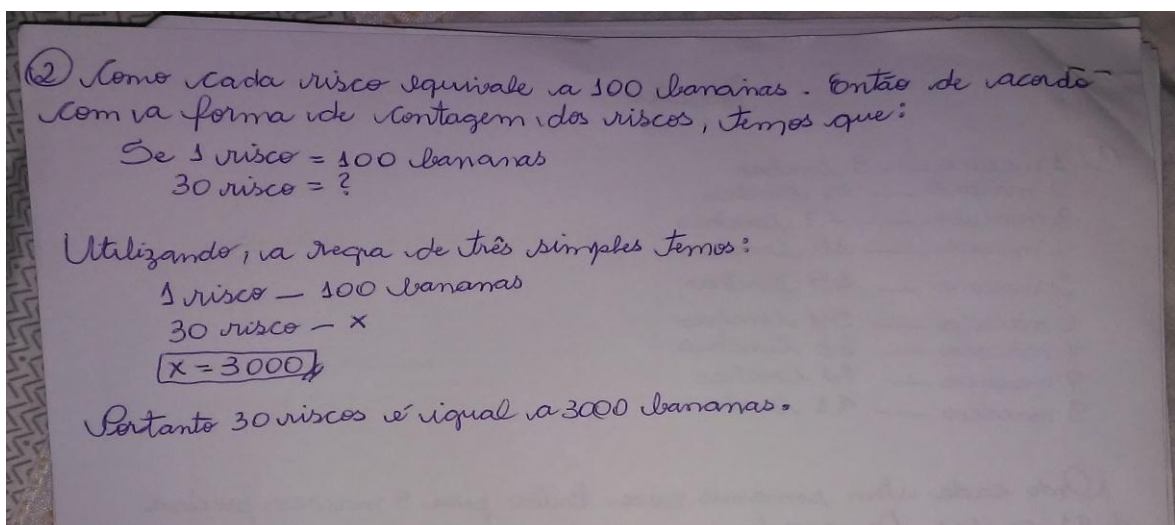 ② Como cada risco equivale a 100 bananas. Então de acordo
com a forma de contagem dos riscos, temos que:
Se 1 risco = 100 bananas
30 risco = ?
Utilizando, a regra de três simples temos:
1 risco — 100 bananas
30 risco — x
x = 3000
Portanto 30 riscos é igual a 3000 bananas.